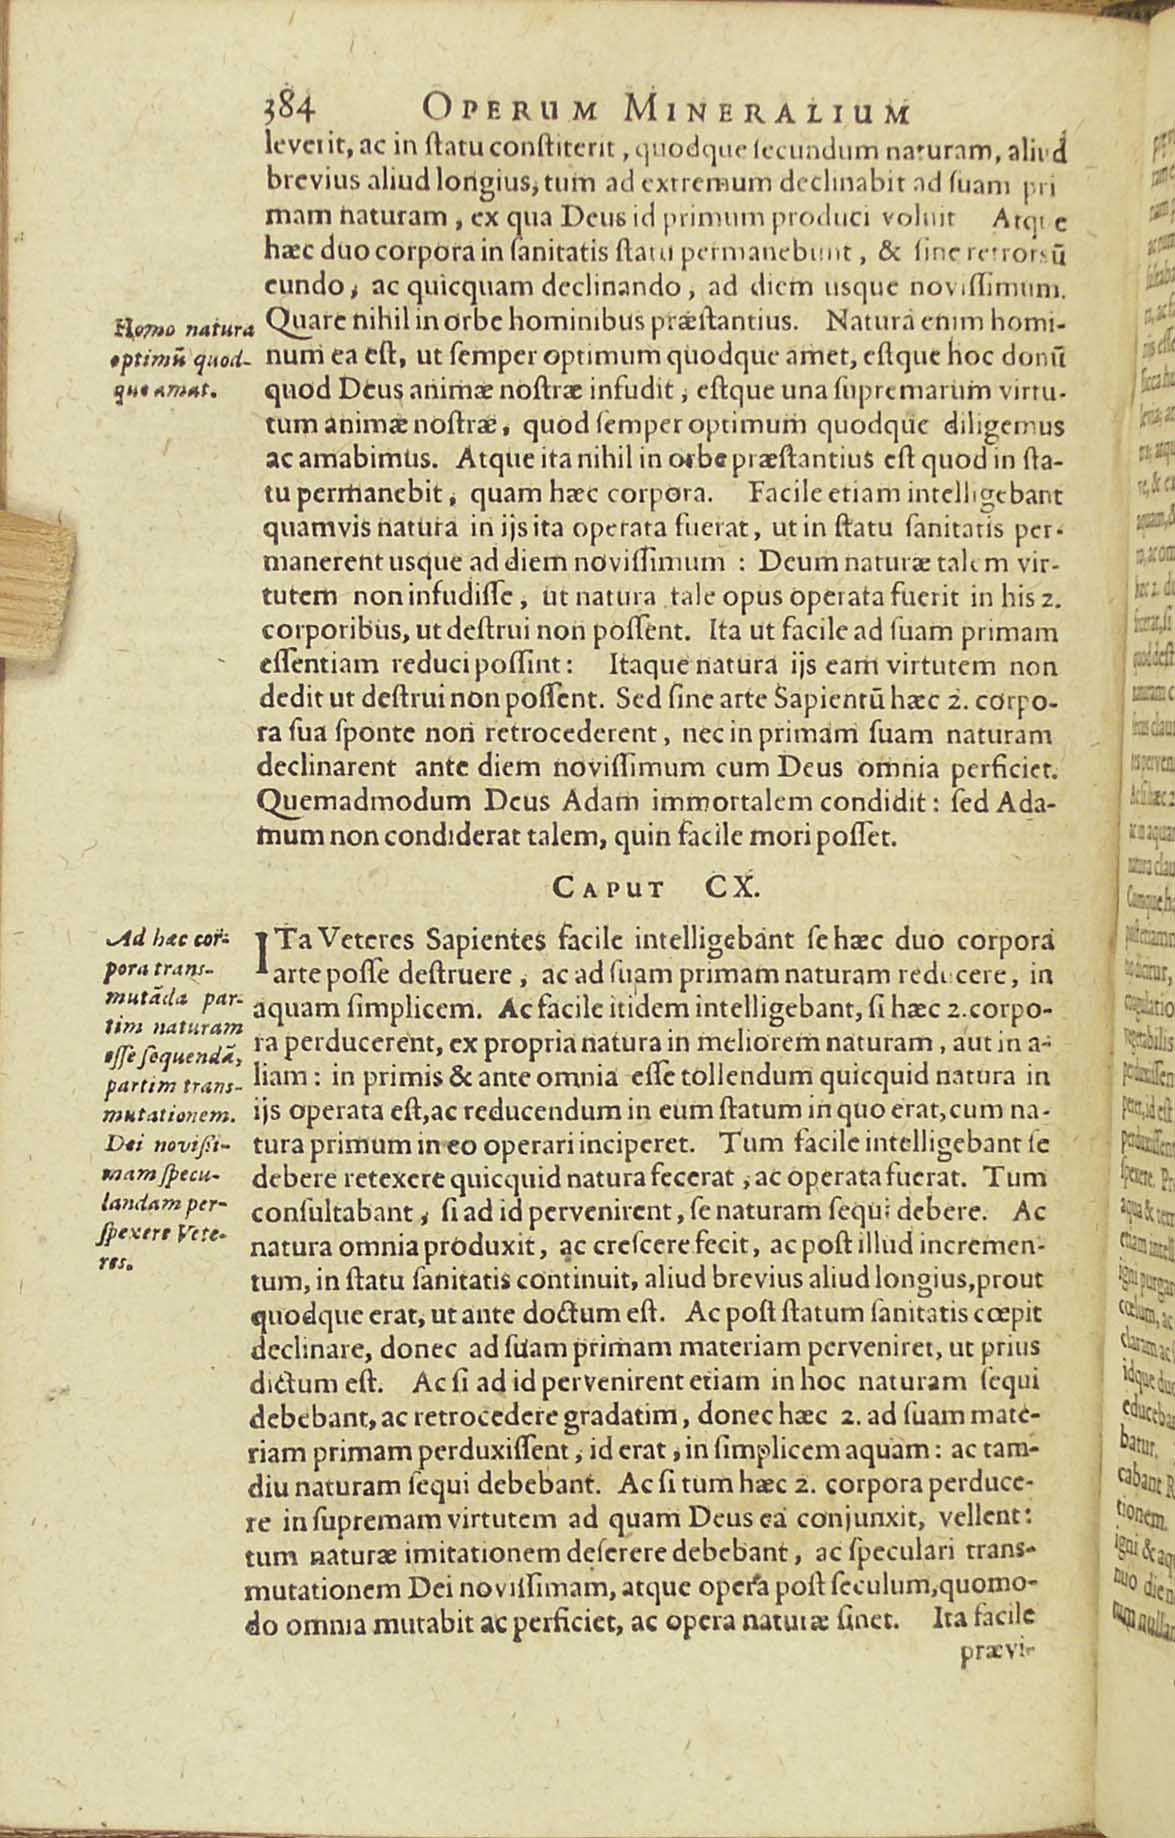 384 OPERUM MINERALIUM
leverit, ac in ſtatu conſtiterit, quodque ſecundum naturam, aliud
brevius aliud longius, tum ad extremum declinabit ad ſuam pri
mam naturam, ex qua Deus id primum produci voluit Atque
hæc duo corpora in ſanitatis ſtatu permanebunt, & ſine retrorsū
eundo, ac quicquam declinando, ad diem usque noviſſimum.
Quare nihil in orbe hominibus præſtantius. Natura enim homi-
num ea eſt, ut ſemper optimum quodque amet, eſtque hoc donū
quod Deus animæ noſtræ infudit, eſtque una ſupremarum virtu-
tum animæ noſtræ, quod ſemper optimum quodque diligemus
ac amabimus. Atque ita nihil in orbe præſtantius eſt quod in ſta-
tu permanebit, quam hæc corpora. Facile etiam intelligebant
quamvis natura in ijs ita operata fuerat, ut in ſtatu ſanitatis per-
manerent usque ad diem noviſſimum : Deum naturæ talem vir-
tutem non infudiſſe, ut natura tale opus operata fuerit in his 2.
corporibus, ut deſtrui non poſſent. Ita ut facile ad ſuam primam
eſſentiam reduci poſſint: Itaque natura ijs eam virtutem non
dedit ut deſtrui non poſſent. Sed ſine arte Sapientū hæc 2. corpo-
ra ſua ſponte non retrocederent, nec in primam ſuam naturam
declinarent ante diem noviſſimum cum Deus omnia perficiet.
Quemadmodum Deus Adam immortalem condidit: ſed Ada-
mum non condiderat talem, quin facile mori poſſet.
Homo natura
optimū quod-
que amat.
CAPUT CX.
ITa Veteres Sapientes facile intelligebant ſe hæc duo corpora
arte poſſe deſtruere, ac ad ſuam primam naturam reducere, in
aquam ſimplicem. Ac facile itidem intelligebant, ſi hæc 2. corpo-
ra perducerent, ex propria natura in meliorem naturam, aut in a-
liam: in primis & ante omnia eſſe tollendum quicquid natura in
ijs operata eſt, ac reducendum in eum ſtatum in quo erat, cum na-
tura primum in eo operari inciperet. Tum facile intelligebant ſe
debere retexere quicquid natura fecerat, ac operata fuerat. Tum
conſultabant, ſi ad id pervenirent, ſe naturam ſequi debere. Ac
natura omnia produxit, ac creſcere fecit, ac poſt illud incremen-
tum, in ſtatu ſanitatis continuit, aliud brevius aliud longius, prout
quodque erat, ut ante doctum eſt. Ac poſt ſtatum ſanitatis cœpit
declinare, donec ad ſuam primam materiam perveniret, ut prius
dictum eſt. Ac ſi ad id pervenirent etiam in hoc naturam ſequi
debebant, ac retrocedere gradatim, donec hæc 2. ad ſuam mate-
riam primam perduxiſſent, id erat, in ſimplicem aquam: ac tam-
diu naturam ſequi debebant. Ac ſi tum hæc 2. corpora perduce-
re in ſupremam virtutem ad quam Deus ea conjunxit, vellent:
tum naturæ imitationem deſerere debebant, ac ſpeculari trans-
mutationem Dei noviſſimam, atque opera poſt ſeculum, quomo-
do omnia mutabit ac perficiet, ac opera naturæ ſinet. Ita facile
prævi-
Ad hæc cor-
pora trans-
mutāda par-
tim naturam
eſſe ſequendā,
partim trans-
mutationem.
Dei noviſsi-
mam ſpecu-
landam per-
ſpexere Vete-
res.